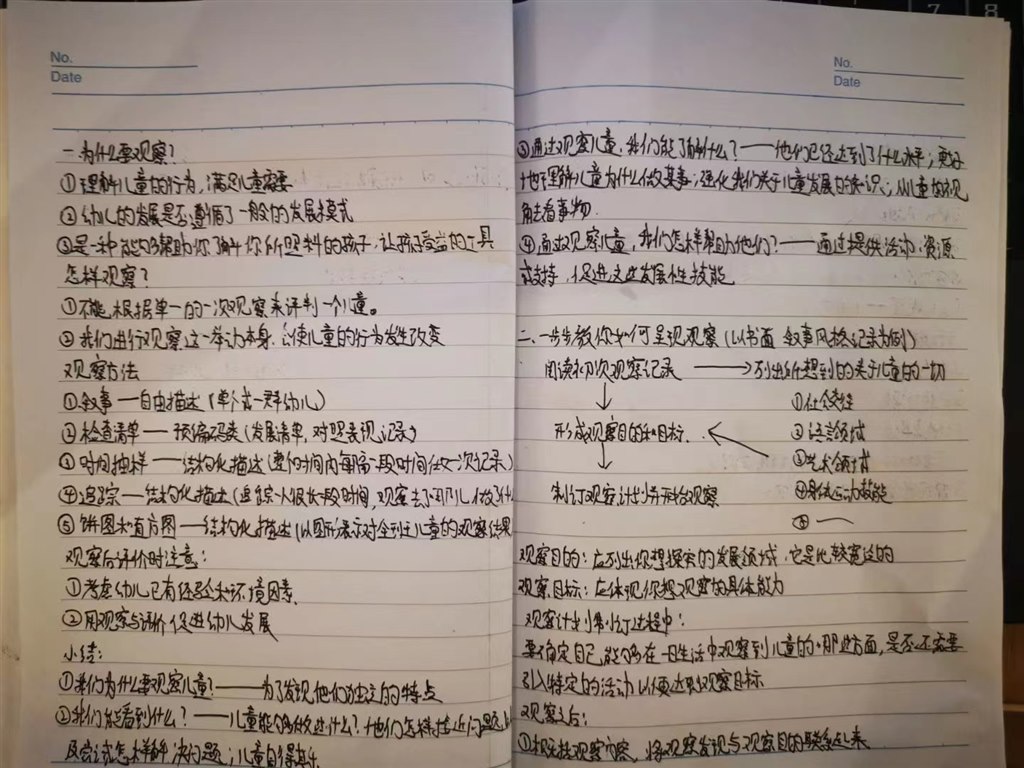 No.
Date
一.为什么要观察?
①理解儿童的行为,满足儿童需要
②幼儿的发展是否遵循了一般的发展模式
③是一种能够帮助你了解你所照料的孩子,让孩子受益的工具
怎样观察?
①不能根据单一的一次观察来评判一个儿童。
②我们进行观察这一举动本身,会使儿童的行为发生改变
观察方法
①叙事——自由描述(单个或一群幼儿)
②检查清单——预编码类(发展清单,对照表识记录)
③时间抽样——结构化描述(整个时间内每隔一段时间做一次记录)
④追踪——结构化描述(追踪一人很长一段时间,观察去了哪儿做了什
⑤饼图和直方图——结构化描述(以图形表示对全班儿童的观察结果
观察后评价时注意:
①考虑幼儿已有经验和环境因素.
②用观察与评价促进幼儿发展
小结:
①我们为什么要观察儿童?——为了发现他们独立的特点
②我们能看到什么?——儿童能够做些什么?他们怎样接近问题以
及尝试怎样解决问题;儿童自得其乐
No.
Date
③通过观察儿童,我们能了解什么?——他们已经达到了什么水平;更好
地理解儿童为什么做某事;强化我们关于儿童发展的知识;从儿童的视
角去看事物.
④通过观察儿童,我们怎样帮助他们?——通过提供活动、资源
或支持,促进这些发展性技能
二、一步步教你如何呈现观察(以书面叙事风格记录为例)
阅读初次观察记录 ——→列出所想到的关于儿童的一切
①社会交往
形成观察目的和目标.
②语言领域
③艺术领域
制订观察计划并开始观察
④身体运动技能
⑤——
观察目的:应列出你想探究的发展领域,它是比较宽泛的
观察目标:应体现你想观察的具体能力
观察计划制订过程中:
要确定自己能够在一日生活中观察到儿童的哪些方面,是否还需要
引入特定的活动以便达到观察目标
观察之后:
①概括观察内容,将观察发现与观察目的联系起来